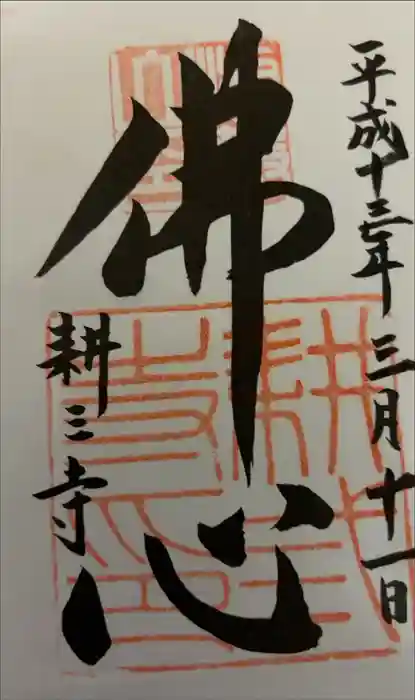 平成十三年 三月十一日
佛心
耕三寺